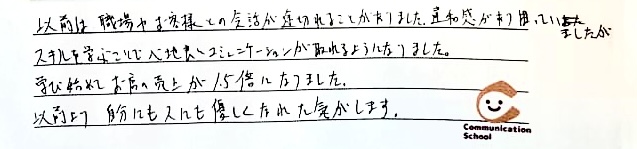 以前は職場やお客様との会話が途切れることがありました。違和感があり困っていましたが
スキルを学ぶことで心地良いコミュニケーションが取れるようになりました。
学び始めてお店の売上が1.5倍になりました。
以前より自分にも人にも優しくなれた気がします。
Communication
School